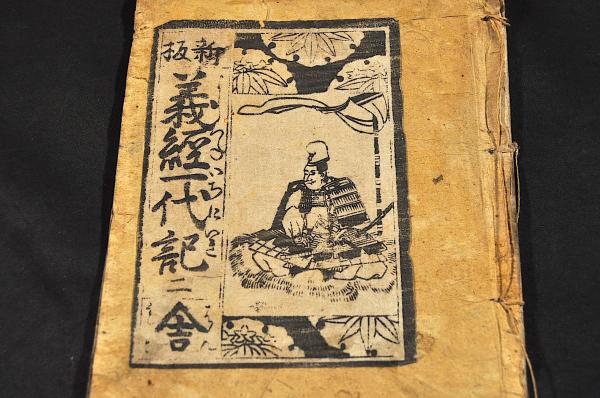 新板
義經一代記二舎